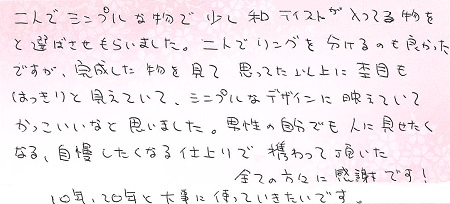 二人でシンプルな物で少し和テイストが入ってる物を
と選ばさせもらいました。二人でリングを分けるのも良かった
ですが、完成した物を見て思ってた以上に杢目も
はっきりと見えていて、シンプルなデザインに映えていて
かっこいいなと思いました。男性の自分でも人に見せたく
なる、自慢したくなる仕上りで携わって頂いた
全ての方々に感謝です!
10年、20年と大事に使っていきたいです。